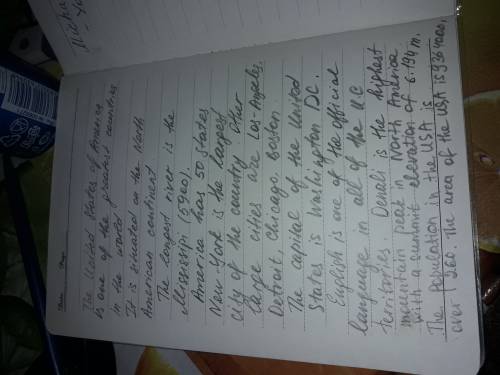 Micha
The United States of America
is one of the greatest countries
in the world
It is situated on the North
American continent
The longest river is the
Mississipi (5920).
America has 50 states
New-York is the largest
city of the country. Other
large cities are Los-Angeles,
Detroit, Chicago. Boston.
The capital of the United
States is Washington DC.
English is one of the official
language in all of the UC
territories. Denali is the highest
mountain peak in North America
with a summit elevation of 6.194 m.
The population in the USA is
over 260. The area of the USA is